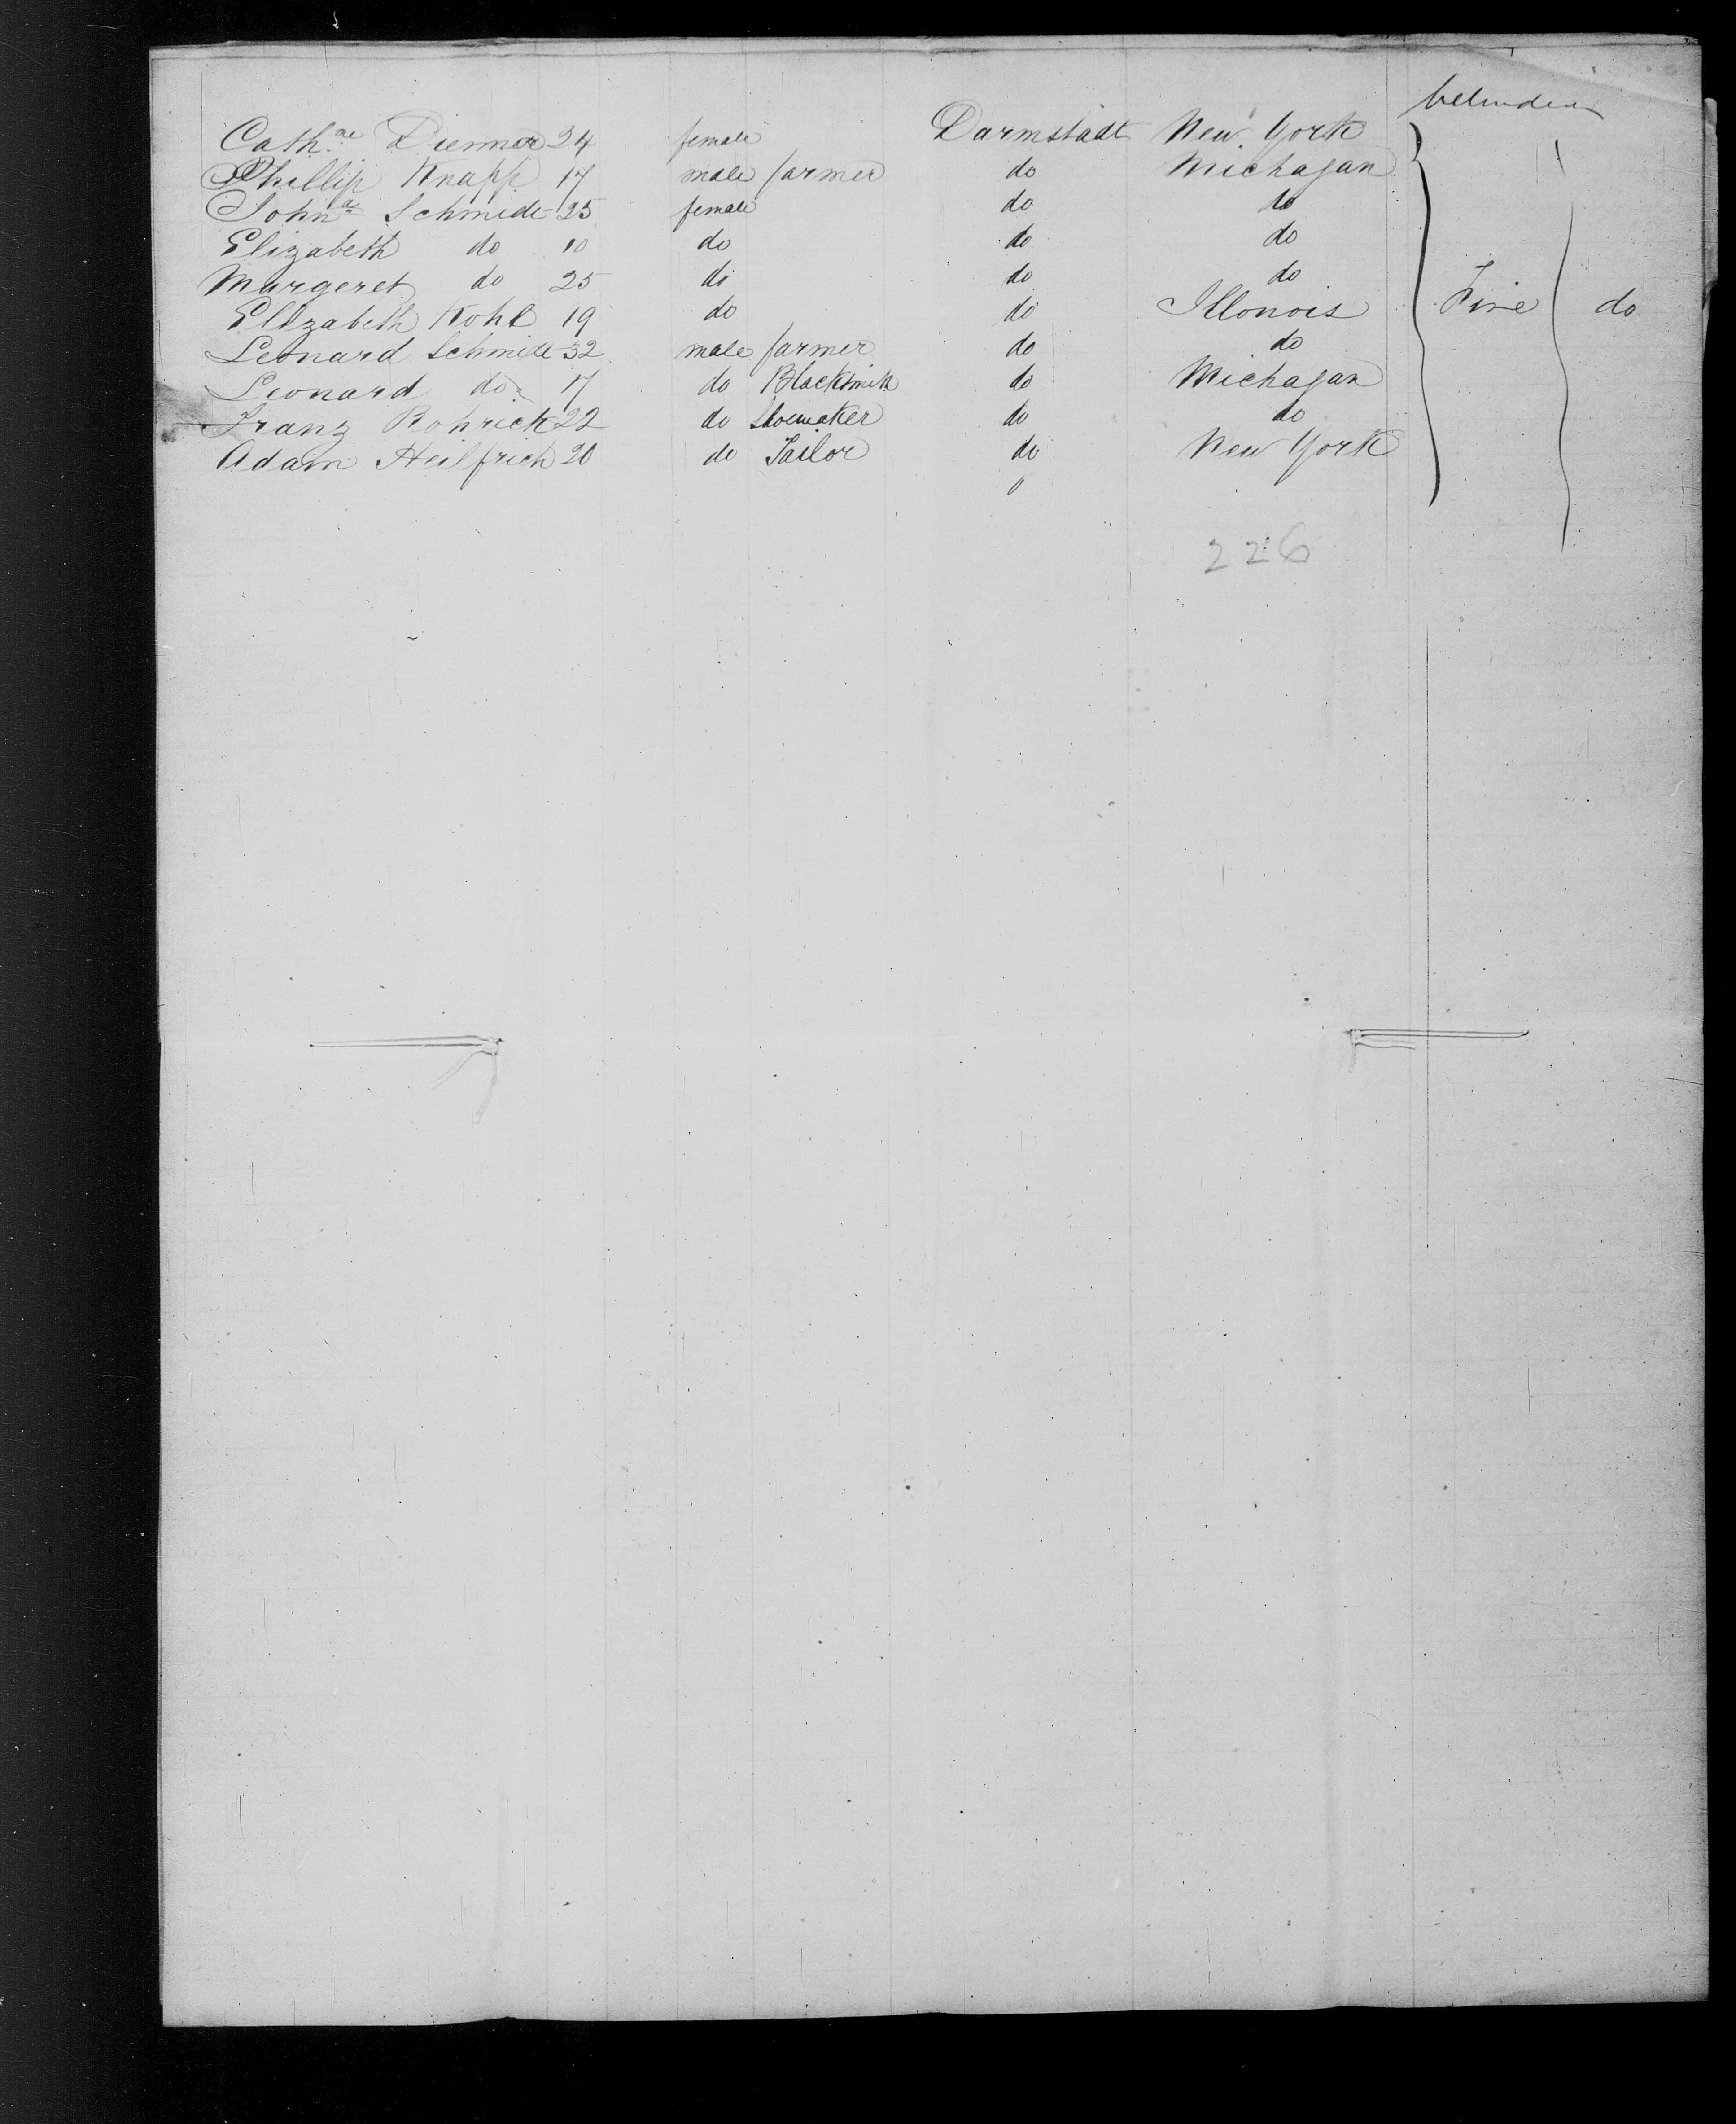 Cath.ae Diemer 24 female Darmstadt New York
Phillip Knapp 17 male farmer do Michagan
John.ae Schmidt 25 female do do
Elizabeth do 10 do do do
Margeret do 25 do do do
Elizabeth Kohl 19 do do Illonois Five do
Leonard Schmidt 32 male farmer do do
Leonard do 17 do Blacksmith do Michagan
Franz Rohrick 22 do Shoemaker do do
Adam Heilfrich 20 do Tailor do New York
226